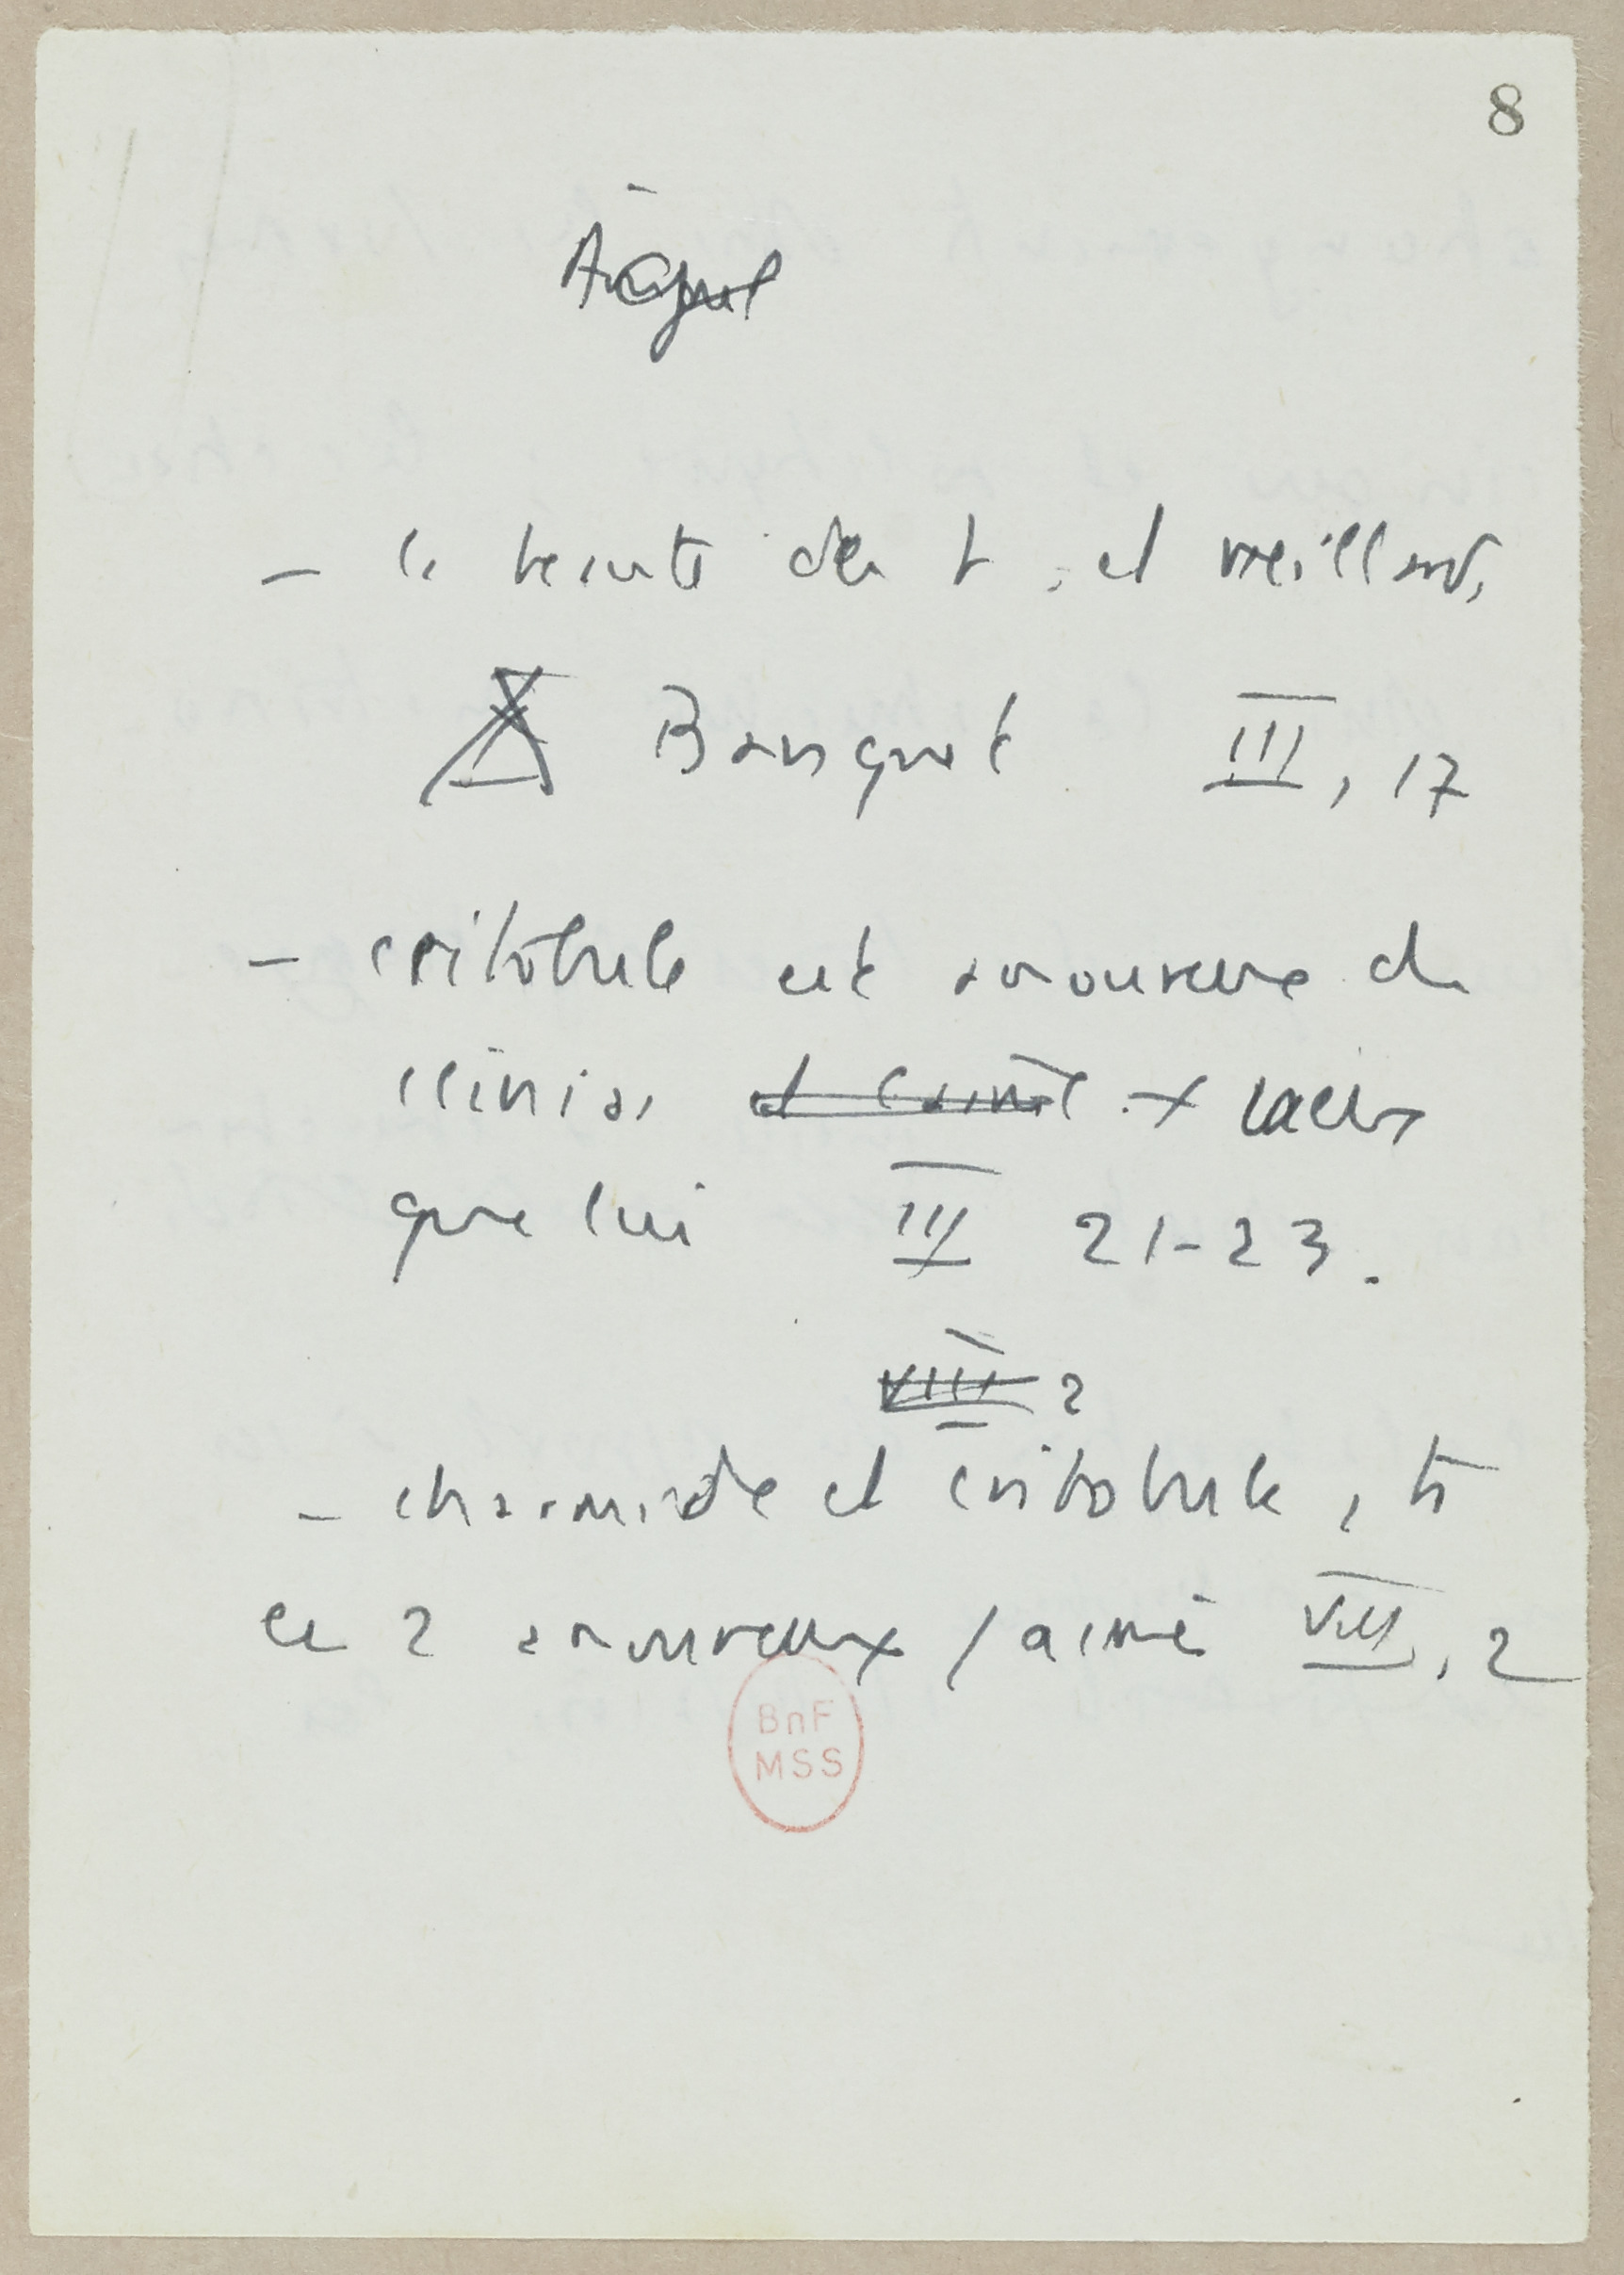 8
- la beauté des et vieillards
Banquet III, 17
- critobule est amoureux de
clinias et l'aimé
que lui III 21-23.
VIII 2
- charmide et critobule,
ce 2 amoureux / aimé VIII, 2
BnF
MSS